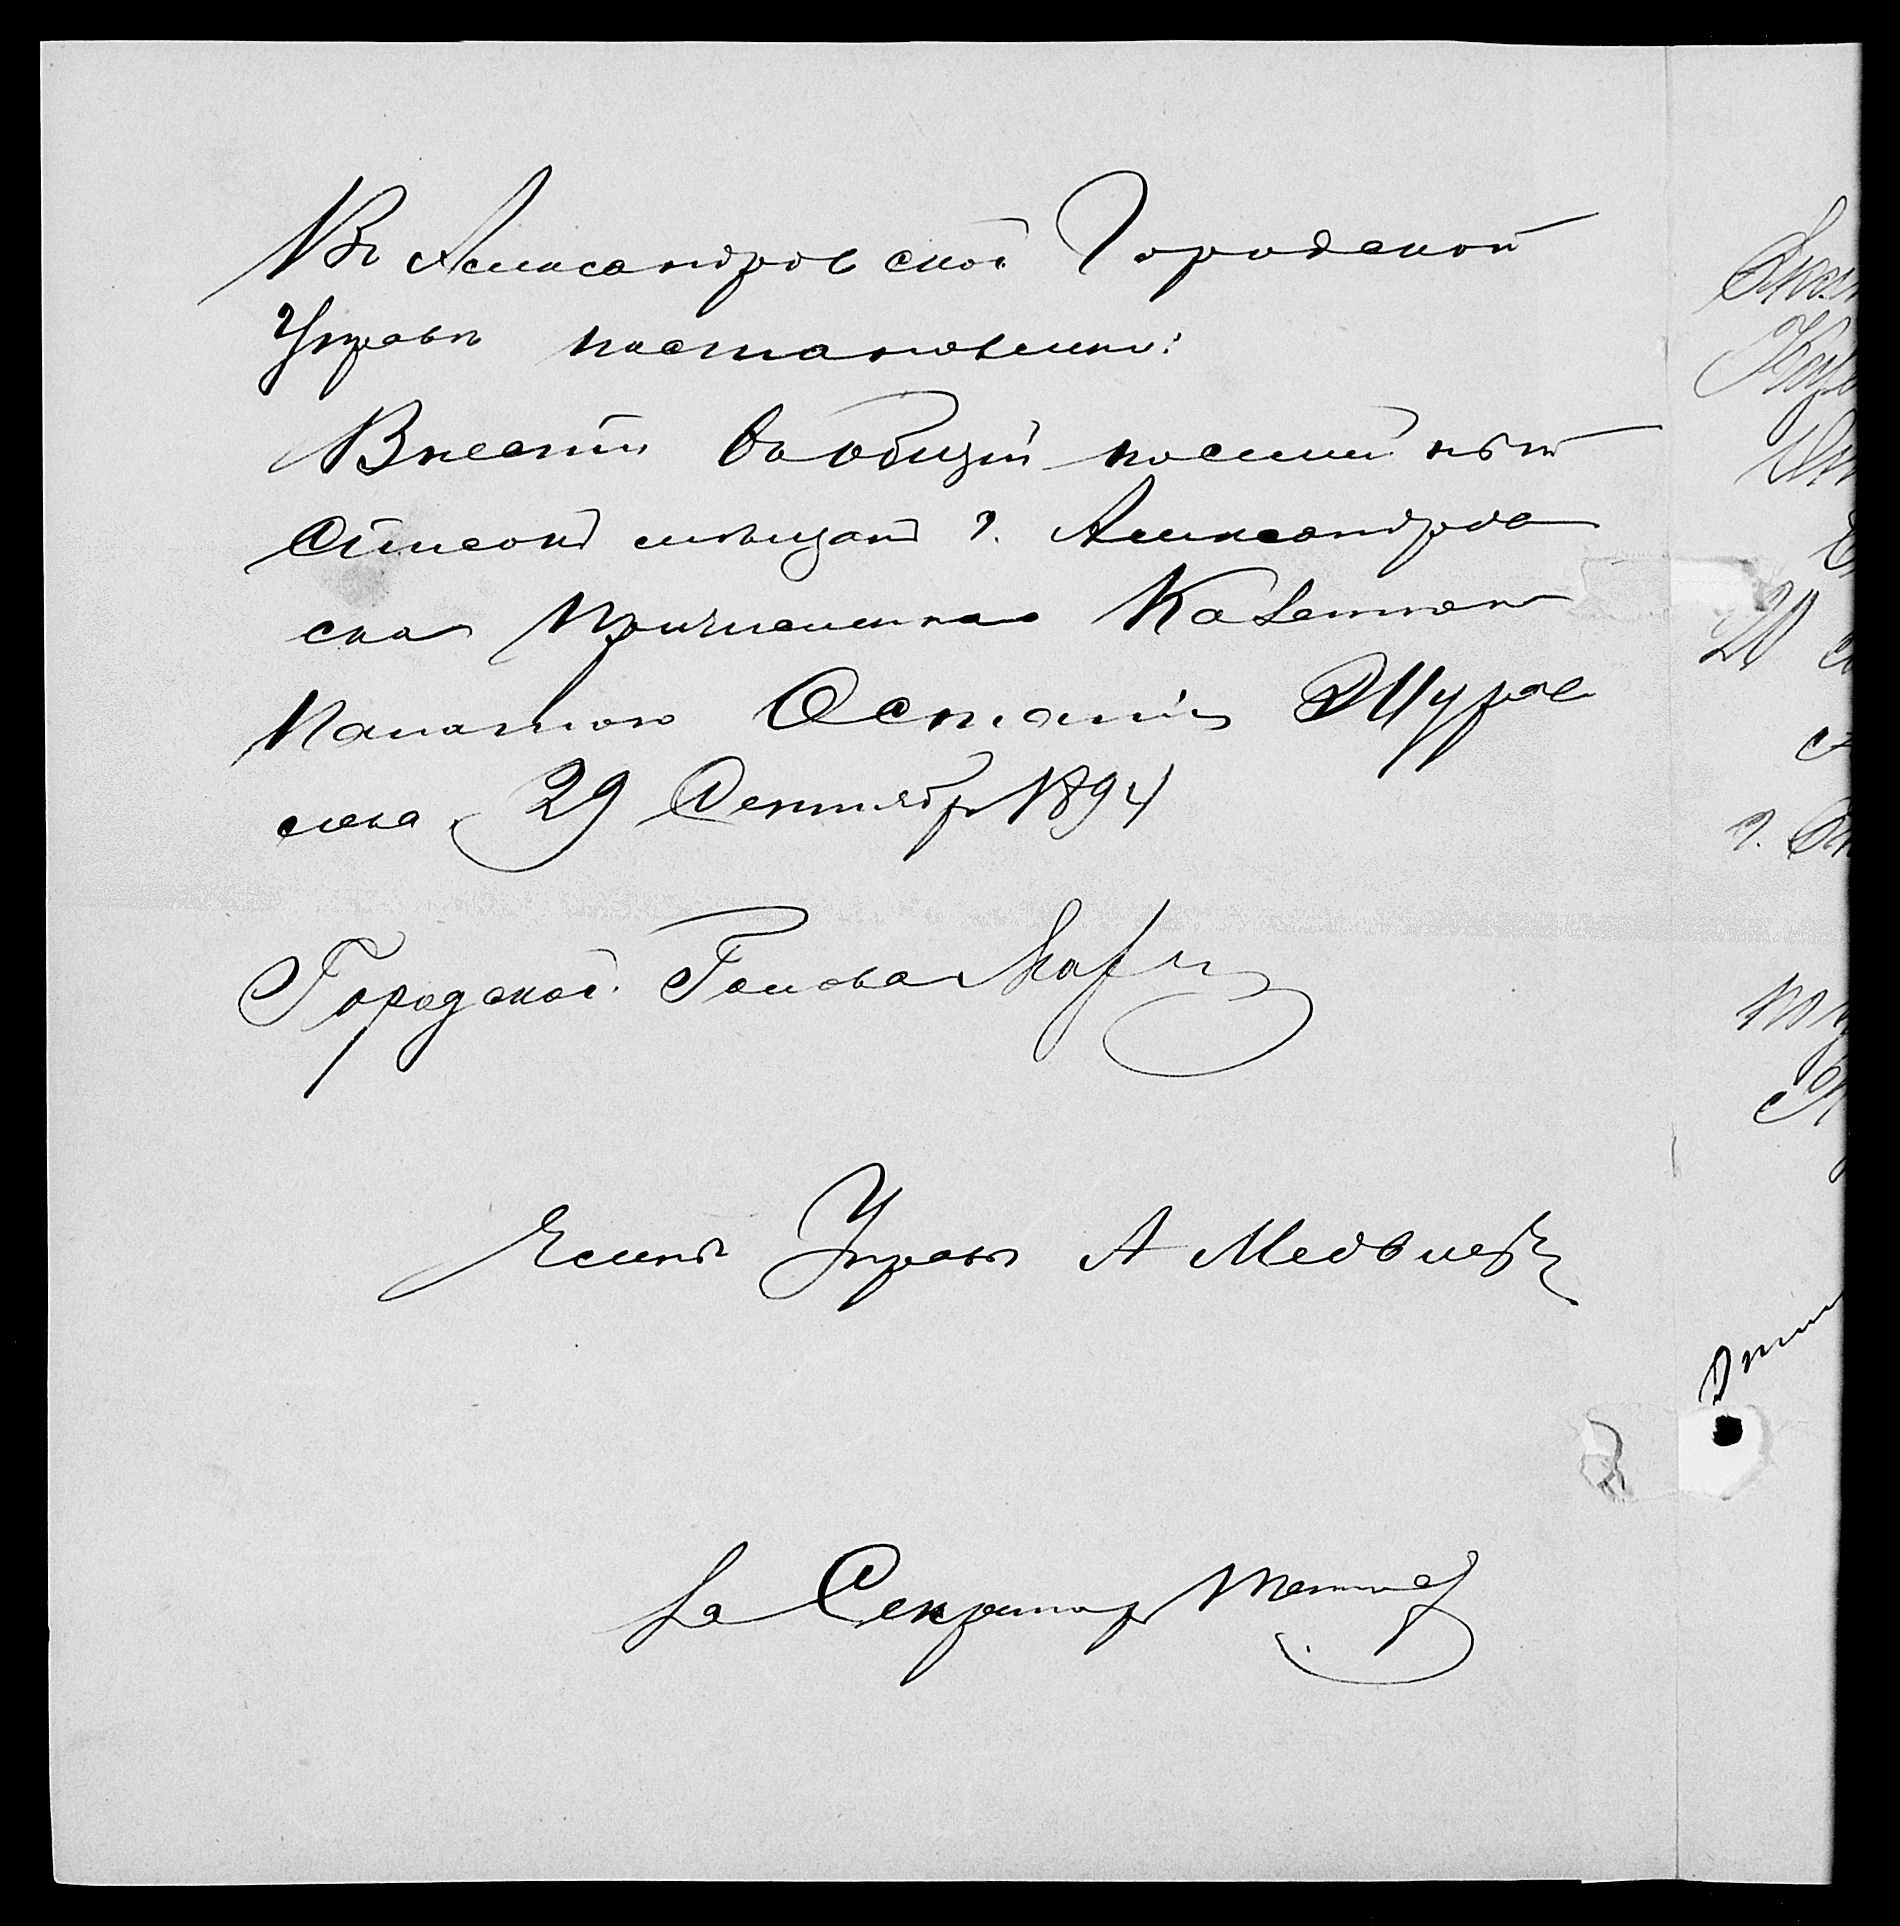 Въ Александровской Городской
Управѣ постановлено:
Внести въ общій посемейный
списокъ мѣщанъ г. Александров
ска причисленнаго Казенною
Палатою
29 Сентября 1894
Городской Голова
Членъ Управы А Медвѣдевъ
За Секретаря